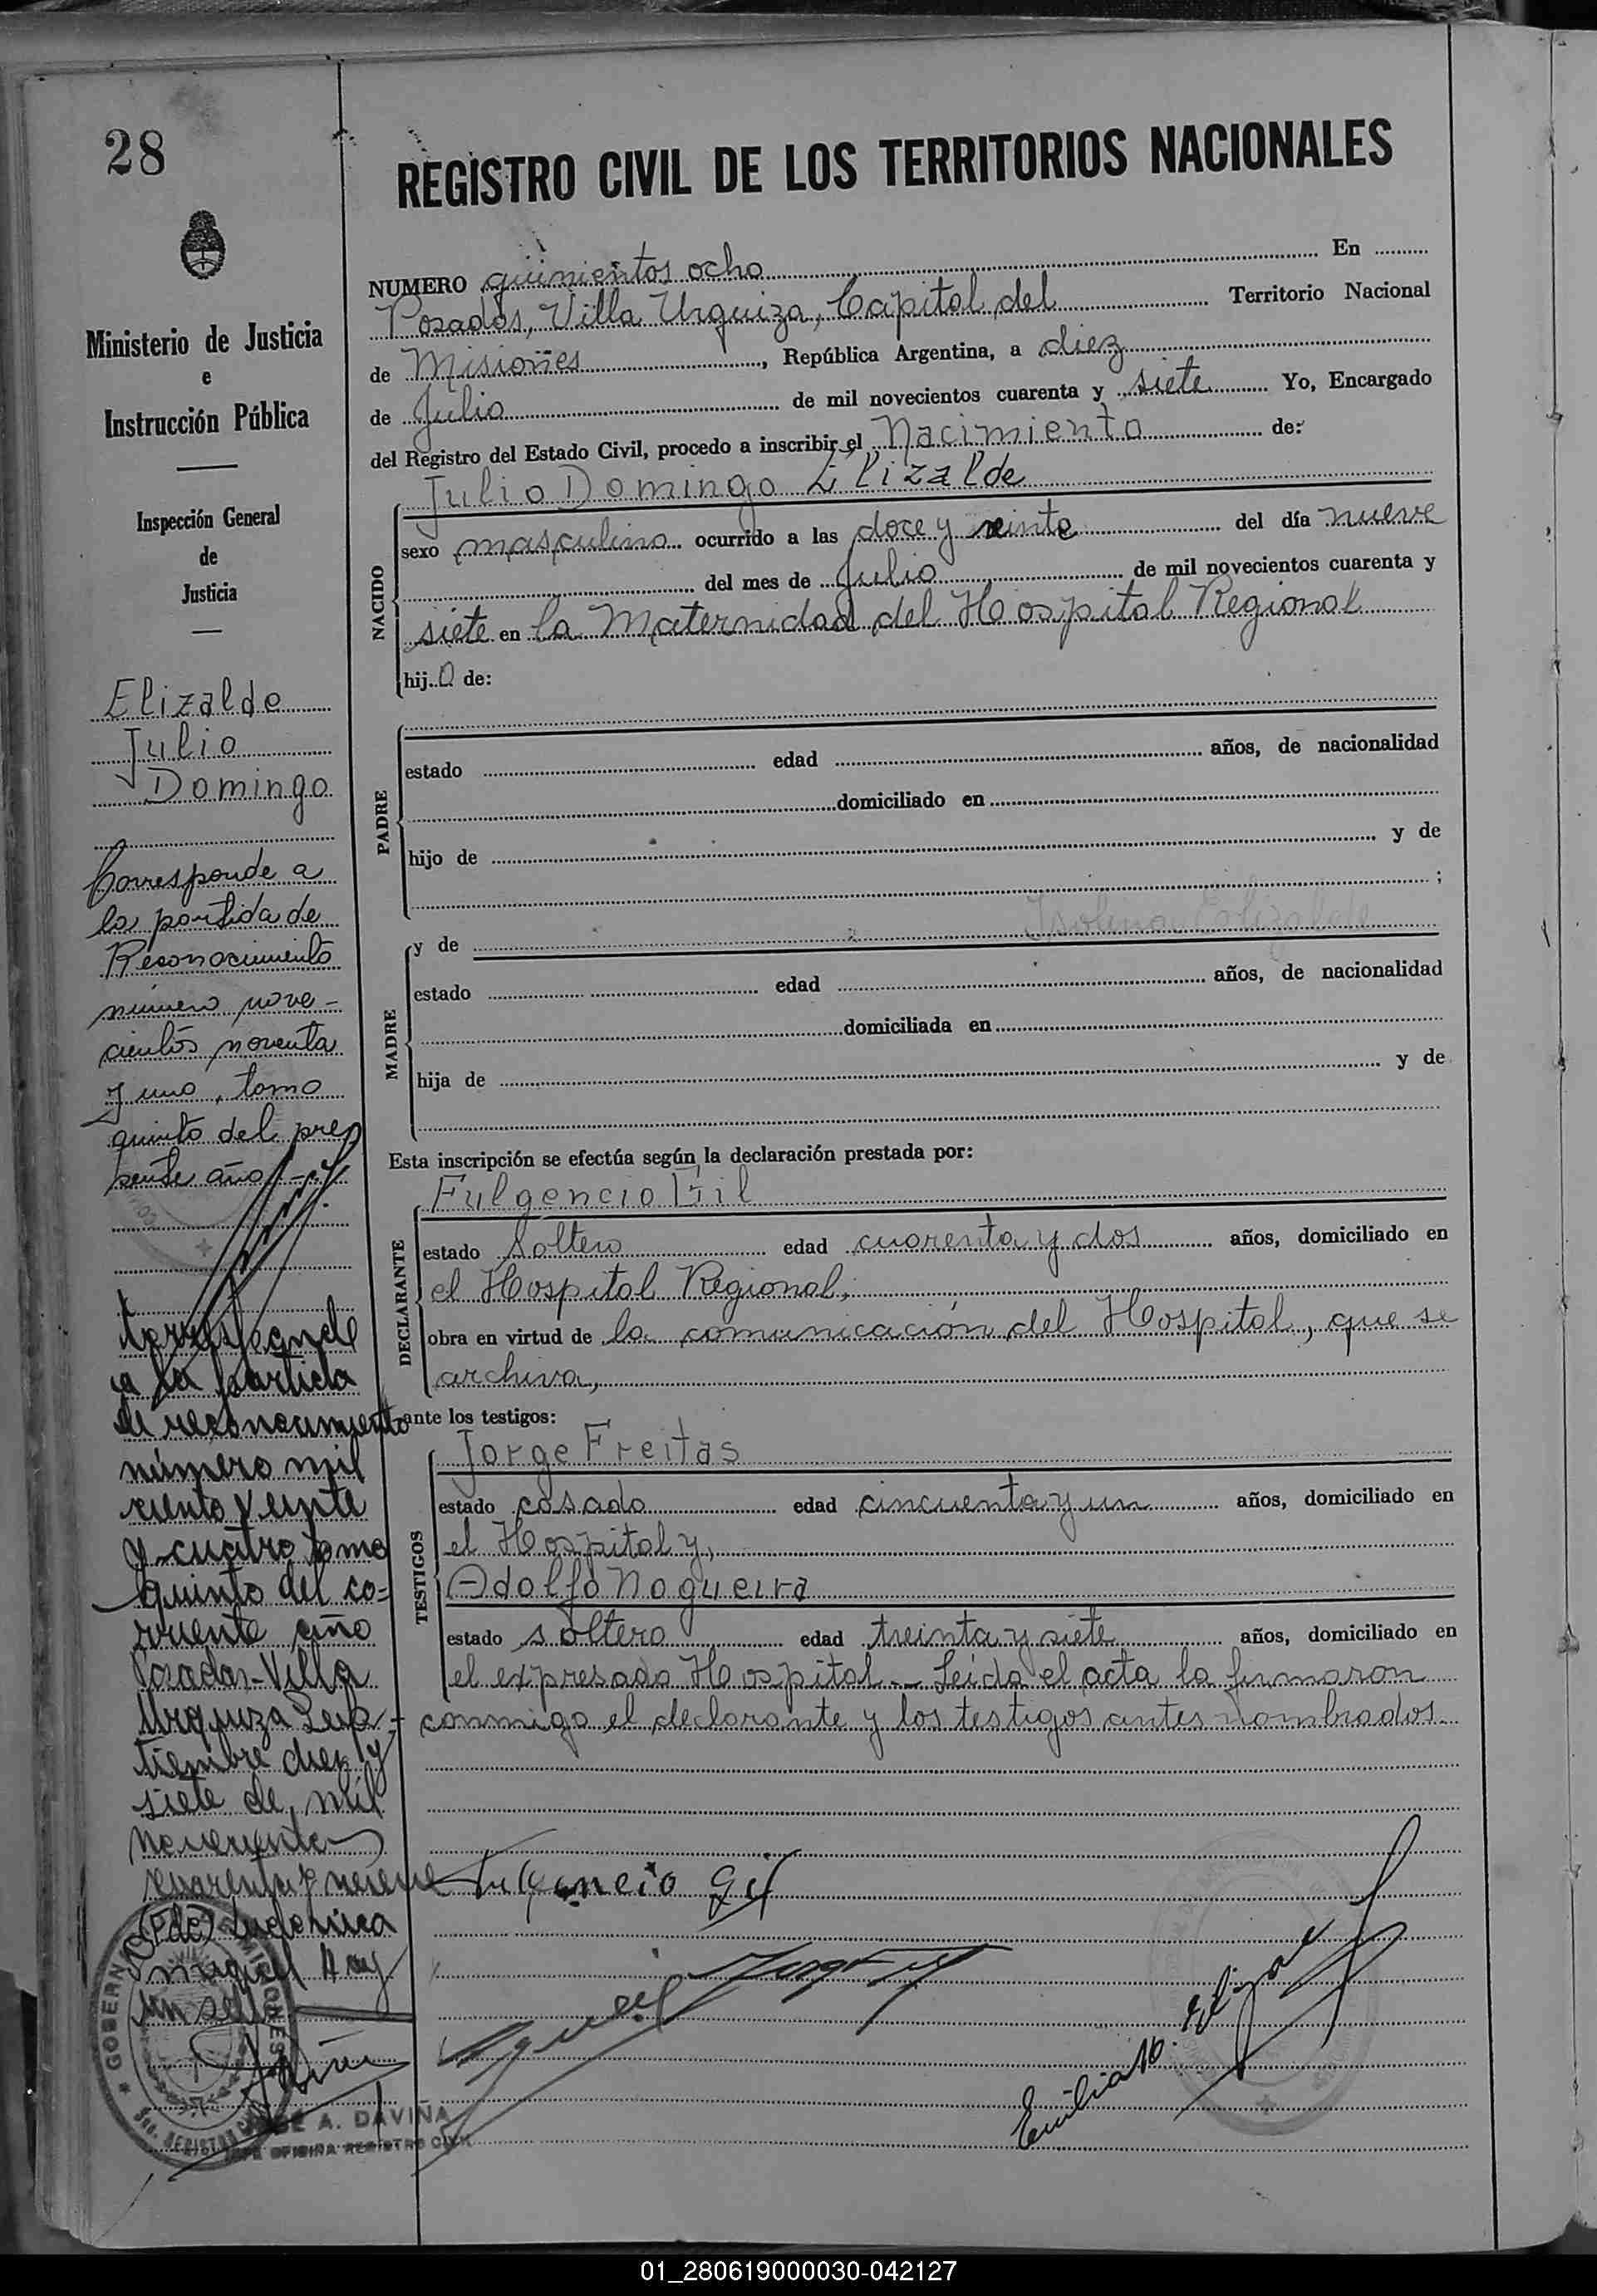 28
REGISTRO CIVIL DE LOS TERRITORIOS NACIONALES
Ministerio de Justicia
e
Instrucción Pública
Inspección General
de
Justicia
Elizalde
Julio
Domingo
Corresponde a
la partida de
Reconocimiento
número nove-
cientos noventa
y uno, tomo
quinto del pre
sente año
Corresponde
a la partida
de reconocimiento
número mil
ciento veinte
y cuatro tomo
quinto del co-
rriente año
Posadas-Villa
Urquiza Sep-
tiembre diez y
siete de mil
novecientos
cuarenta y nueve
(Fdo)
Hay
un sello
GOBERN MISIONES
Sec. REGISTRO
JOSE A. DAVIÑA
JEFE OFICINA REGISTRO CIVIL
NUMERO quinientos ocho En
Posadas, Villa Urquiza, Capital del Territorio Nacional
de Misiones, República Argentina, a diez
de Julio de mil novecientos cuarenta y siete Yo, Encargado
del Registro del Estado Civil, procedo a inscribir el Nacimiento de:
Julio Domingo Elizalde
NACIDO
sexo masculino ocurrido a las doce y veinte del día nueve
del mes de Julio de mil novecientos cuarenta y
siete en la Maternidad del Hospital Regional
hijo de:
PADRE
estado edad años, de nacionalidad
domiciliado en
hijo de y de
;
MADRE
y de Isolina Elizalde
estado edad años, de nacionalidad
domiciliada en
hija de y de
Esta inscripción se efectúa según la declaración prestada por:
Fulgencio Gil
DECLARANTE
estado soltero edad cuarenta y dos años, domiciliado en
el Hospital Regional,
obra en virtud de la comunicación del Hospital, que se
archiva,
ante los testigos:
Jorge Freitas
TESTIGOS
estado casado edad cincuenta y un años, domiciliado en
el Hospital y,
Adolfo Nogueira
estado soltero edad treinta y siete años, domiciliado en
el expresado Hospital.- Leida el acta la firmaron
conmigo el declarante y los testigos antes nombrados.
Fulgencio Gil
01_280619000030-042127